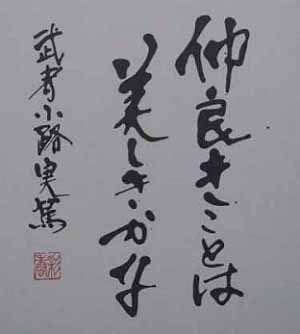 仲良きことは
美しきかな
武者小路実篤